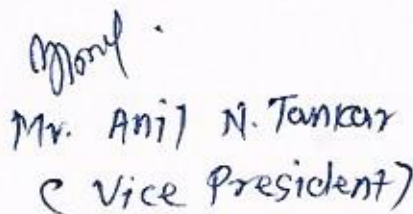 Mr. Anil N. Tankar
( Vice President)